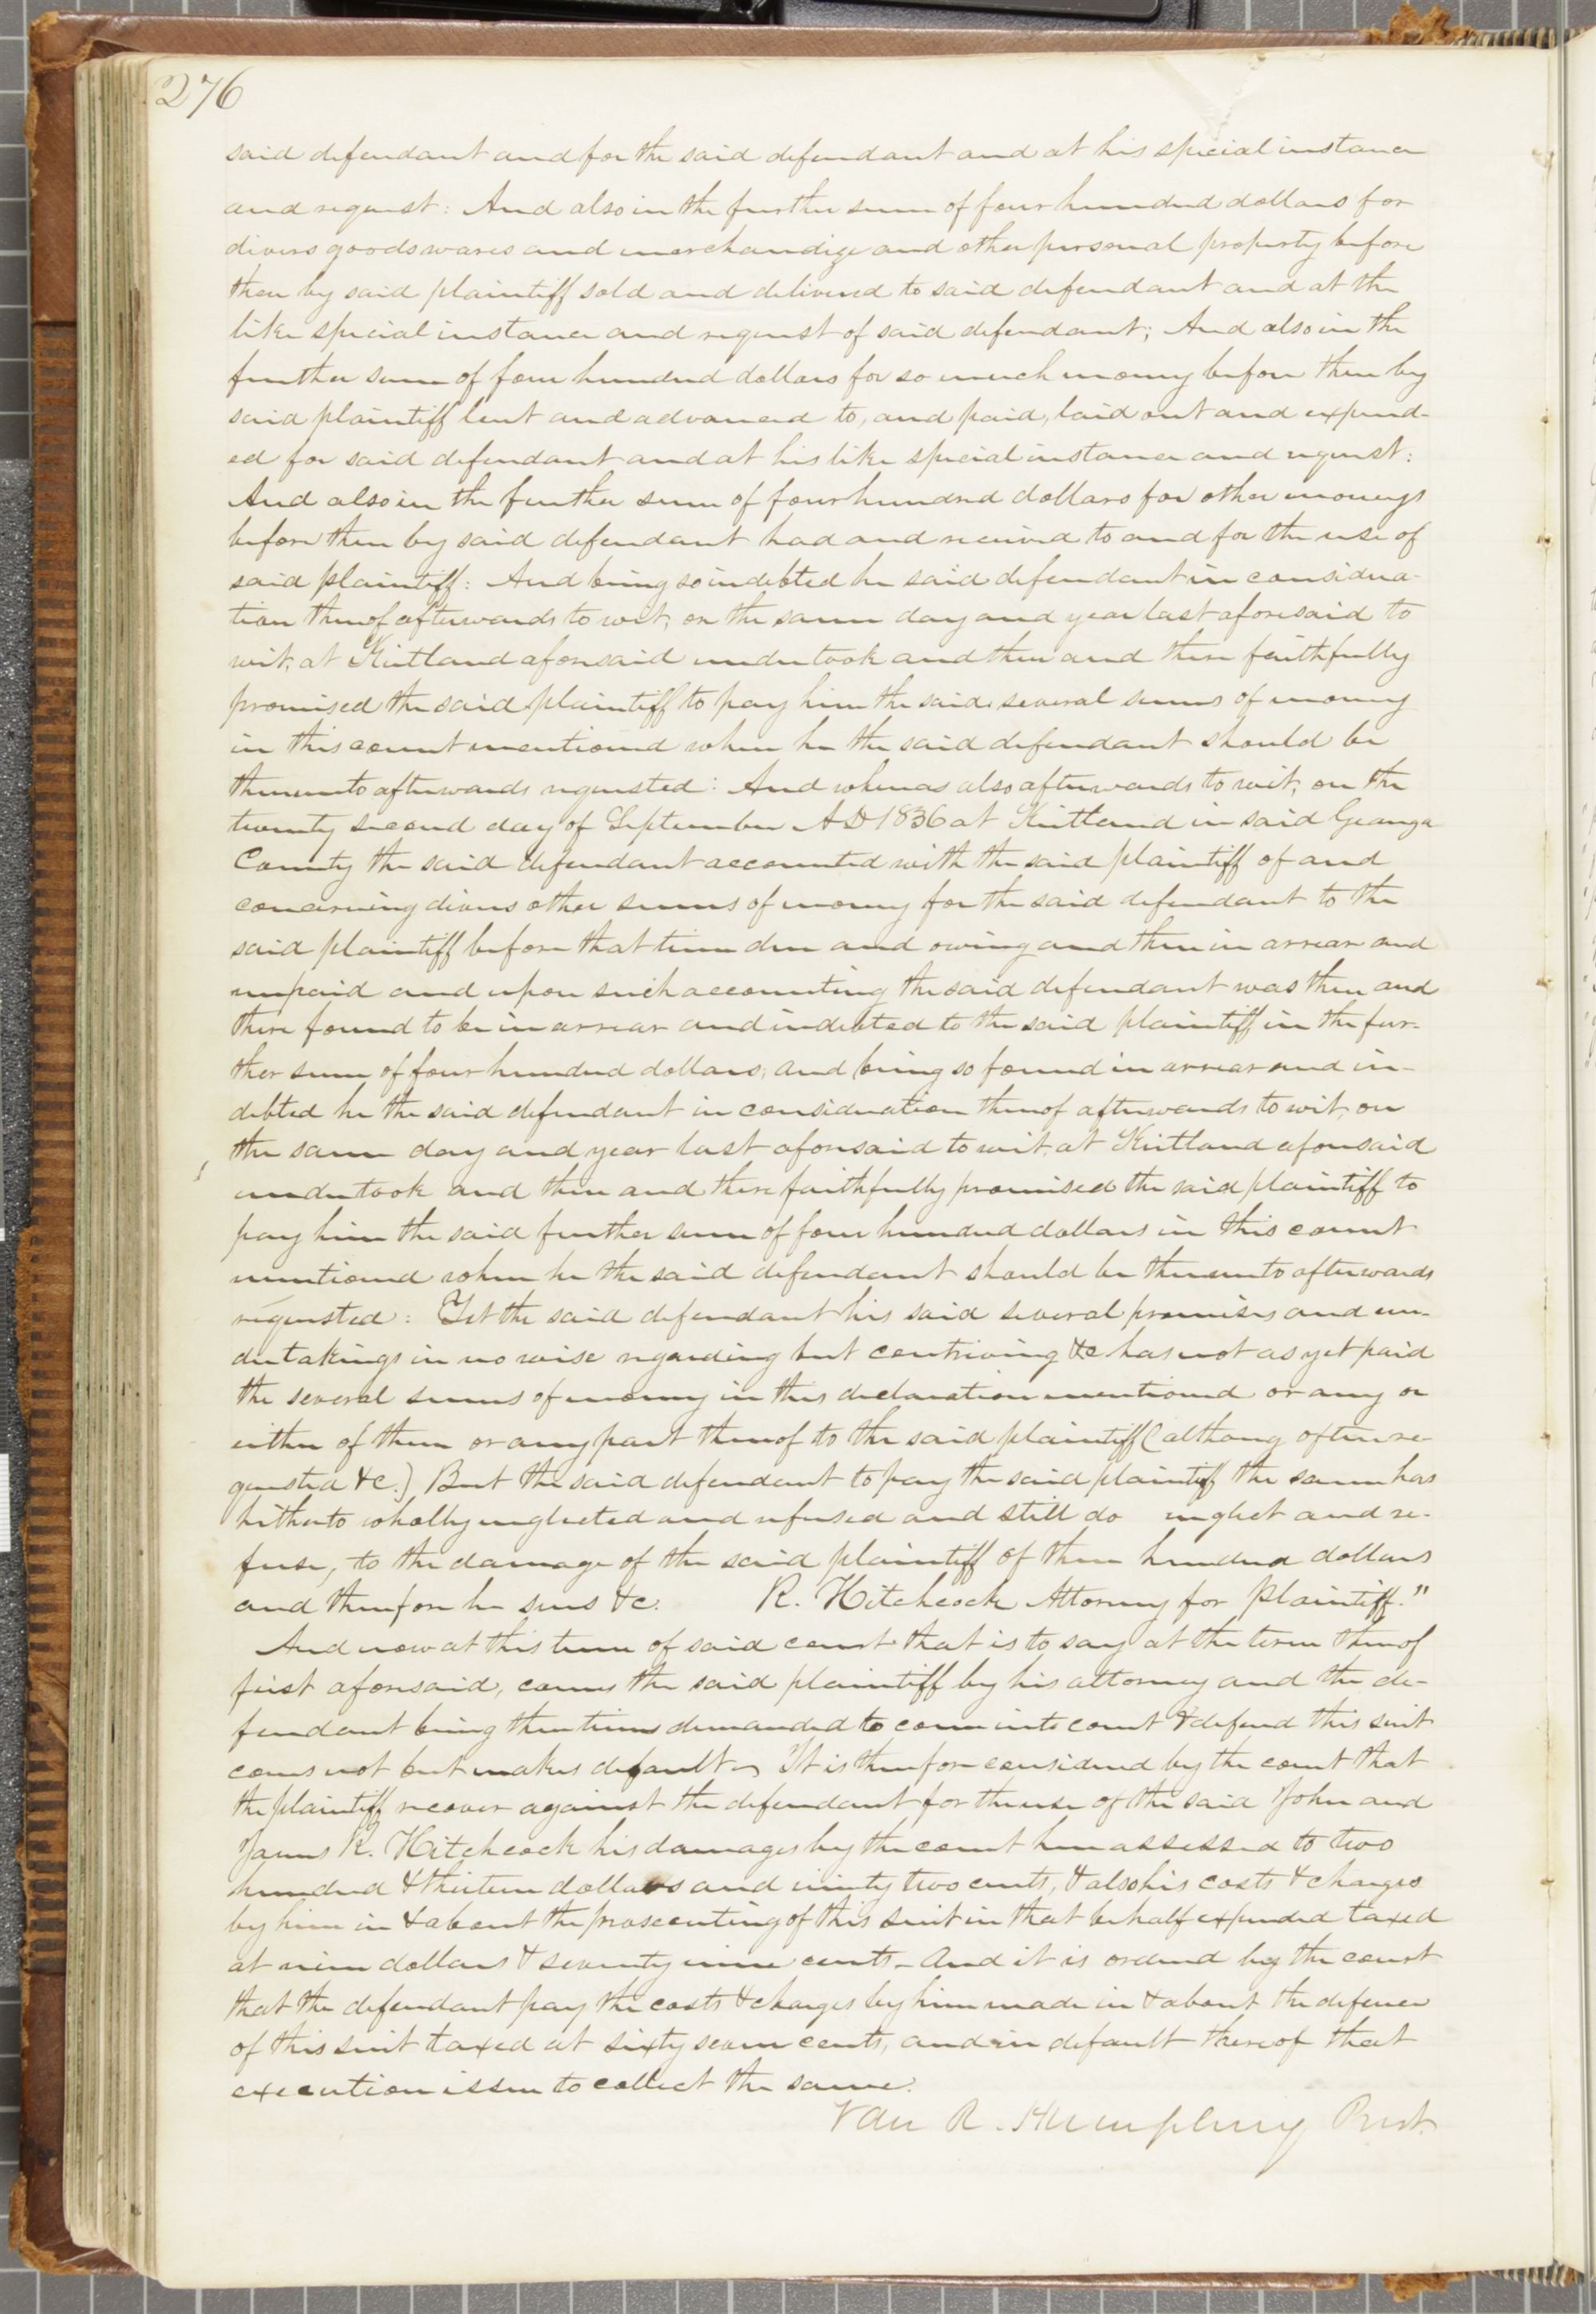 276
said defendant and for the said defendant and at his special instance
and request: And also in the further sum of four hundred dollars for
divers goods wares and merchandize and other personal property before
then by said plaintiff sold and delivered to said defendant and at the
like special instance and request of said defendant; And also in the
further sum of four hundred dollars for so much money before then by
said plaintiff lent and advanced to, and paid, laid out and expend-
ed for said defendant and at his like special instance and request:
And also in the further sum of four hundred dollars for other moneys
before then by said defendant had and received to and for the use of
said plaintiff: And being so indebted he said defendant in considera-
tion thereof afterwards to wit, on the same day and year last aforesaid to
wit, at Kirtland aforesaid undertook and then and there faithfully
promised the said plaintiff to pay him the said several sums of money
in this count mentioned when he the said defendant should be
thereunto afterwards requested: And whereas also afterwards to wit, on the
twenty second day of September AD 1836 at Kirtland in said Geauga
County the said defendant accounted with the said plaintiff of and
concerning divers other sums of money for the said defendant to the
said plaintiff before that time due and owing and then in arrear and
unpaid and upon such accounting the said defendant was then and
there found to be in arrear and indebted to the said plaintiff in the fur-
ther sum of four hundred dollars, and being so found in arrear and in-
debted he the said defendant in consideration thereof afterwards to wit, on
the same day and year last aforesaid to wit, at Kirtland aforesaid
undertook and then and there faithfully promised the said plaintiff to
pay him the said further sum of four hundred dollars in this count
mentioned when he the said defendant should be thereunto afterwards
requested: Yet the said defendant his said several promises and un-
dertakings in no wise regarding but contriving &c has not as yet paid
the several sums of money in this declaration mentioned or any or
either of them or any part thereof to the said plaintiff (althoug often re-
quested &c.) But the said defendant to pay the said plaintiff the same has
hitherto wholly neglected and refused and still do neglect and re-
fuse, to the damage of the said plaintiff of three hundred dollars
and therefore he sues &c. R. Hitchcock Attorney for plaintiff."
And now at this term of said court that is to say at the term thereof
first aforesaid, comes the said plaintiff by his attorney and the de-
fendant being three times demanded to come into court & defend this suit
comes not but makes default It is therefore considered by the court that
the plaintiff recover against the defendant for the use of the said John and
James R. Hitchcock his damages by the court here assessed to two
hundred & thirteen dollars and ninety two cents, & also his costs & charges
by him in & about the prosecuting of this suit in that behalf expended taxed
at nine dollars & seventy nine cents - And it is ordered by the court
that the defendant pay the costs & charges by him made in & about the defence
of this suit taxed at sixty seven cents, and in default thereof that
execution issue to collect the same.
Van R. Humphrey Prest.